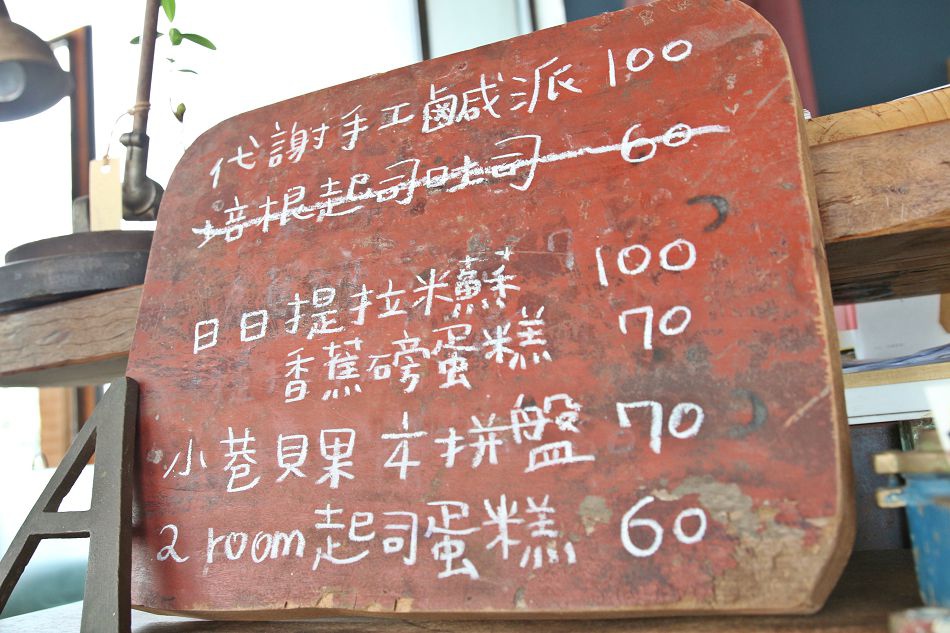 代謝手工鹹派 100
培根起司吐司 60
日日提拉米蘇 100
香蕉磅蛋糕 70
小巷貝果 本拼盤 70
2 room 起司蛋糕 60
A